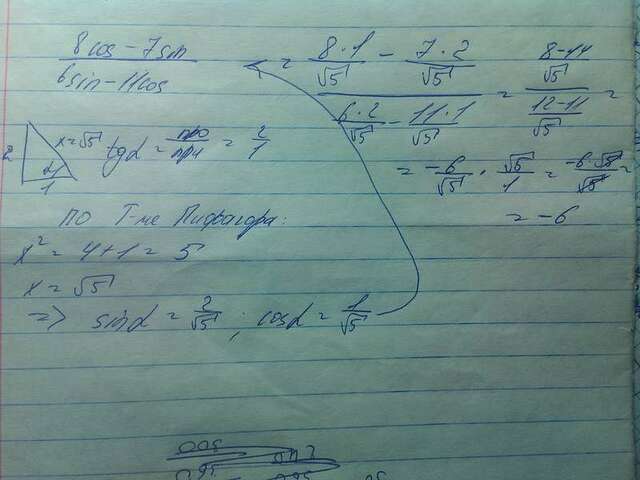 (8cos - 7sin)/(6sin - 11cos) = (8·1/√5 - 7·2/√5)/(6·2/√5 - 11·1/√5) = ((8-14)/√5)/((12-11)/√5) =
= -6/√5 · √5/1 = -6·√5/√5 =
= -6
2 x=√5 α 1
tgα = про/при = 2/1
по Т-ме Пифагора:
x² = 4+1 = 5
x = √5
=> sinα = 2/√5 ; cosα = 1/√5